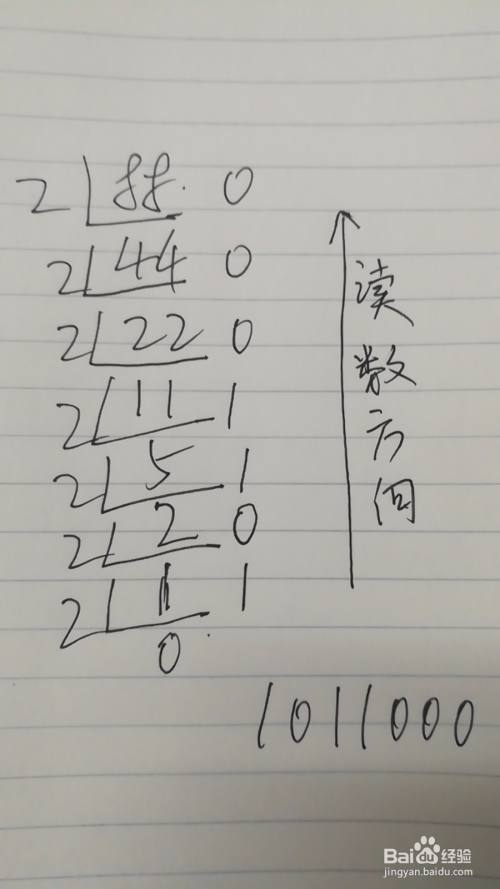 2 88. 0
2 44 0
2 22 0
2 11 1
2 5 1
2 2 0
2 1 1
0
读数方向
1011000
Baidu经验
jingyan.baidu.com